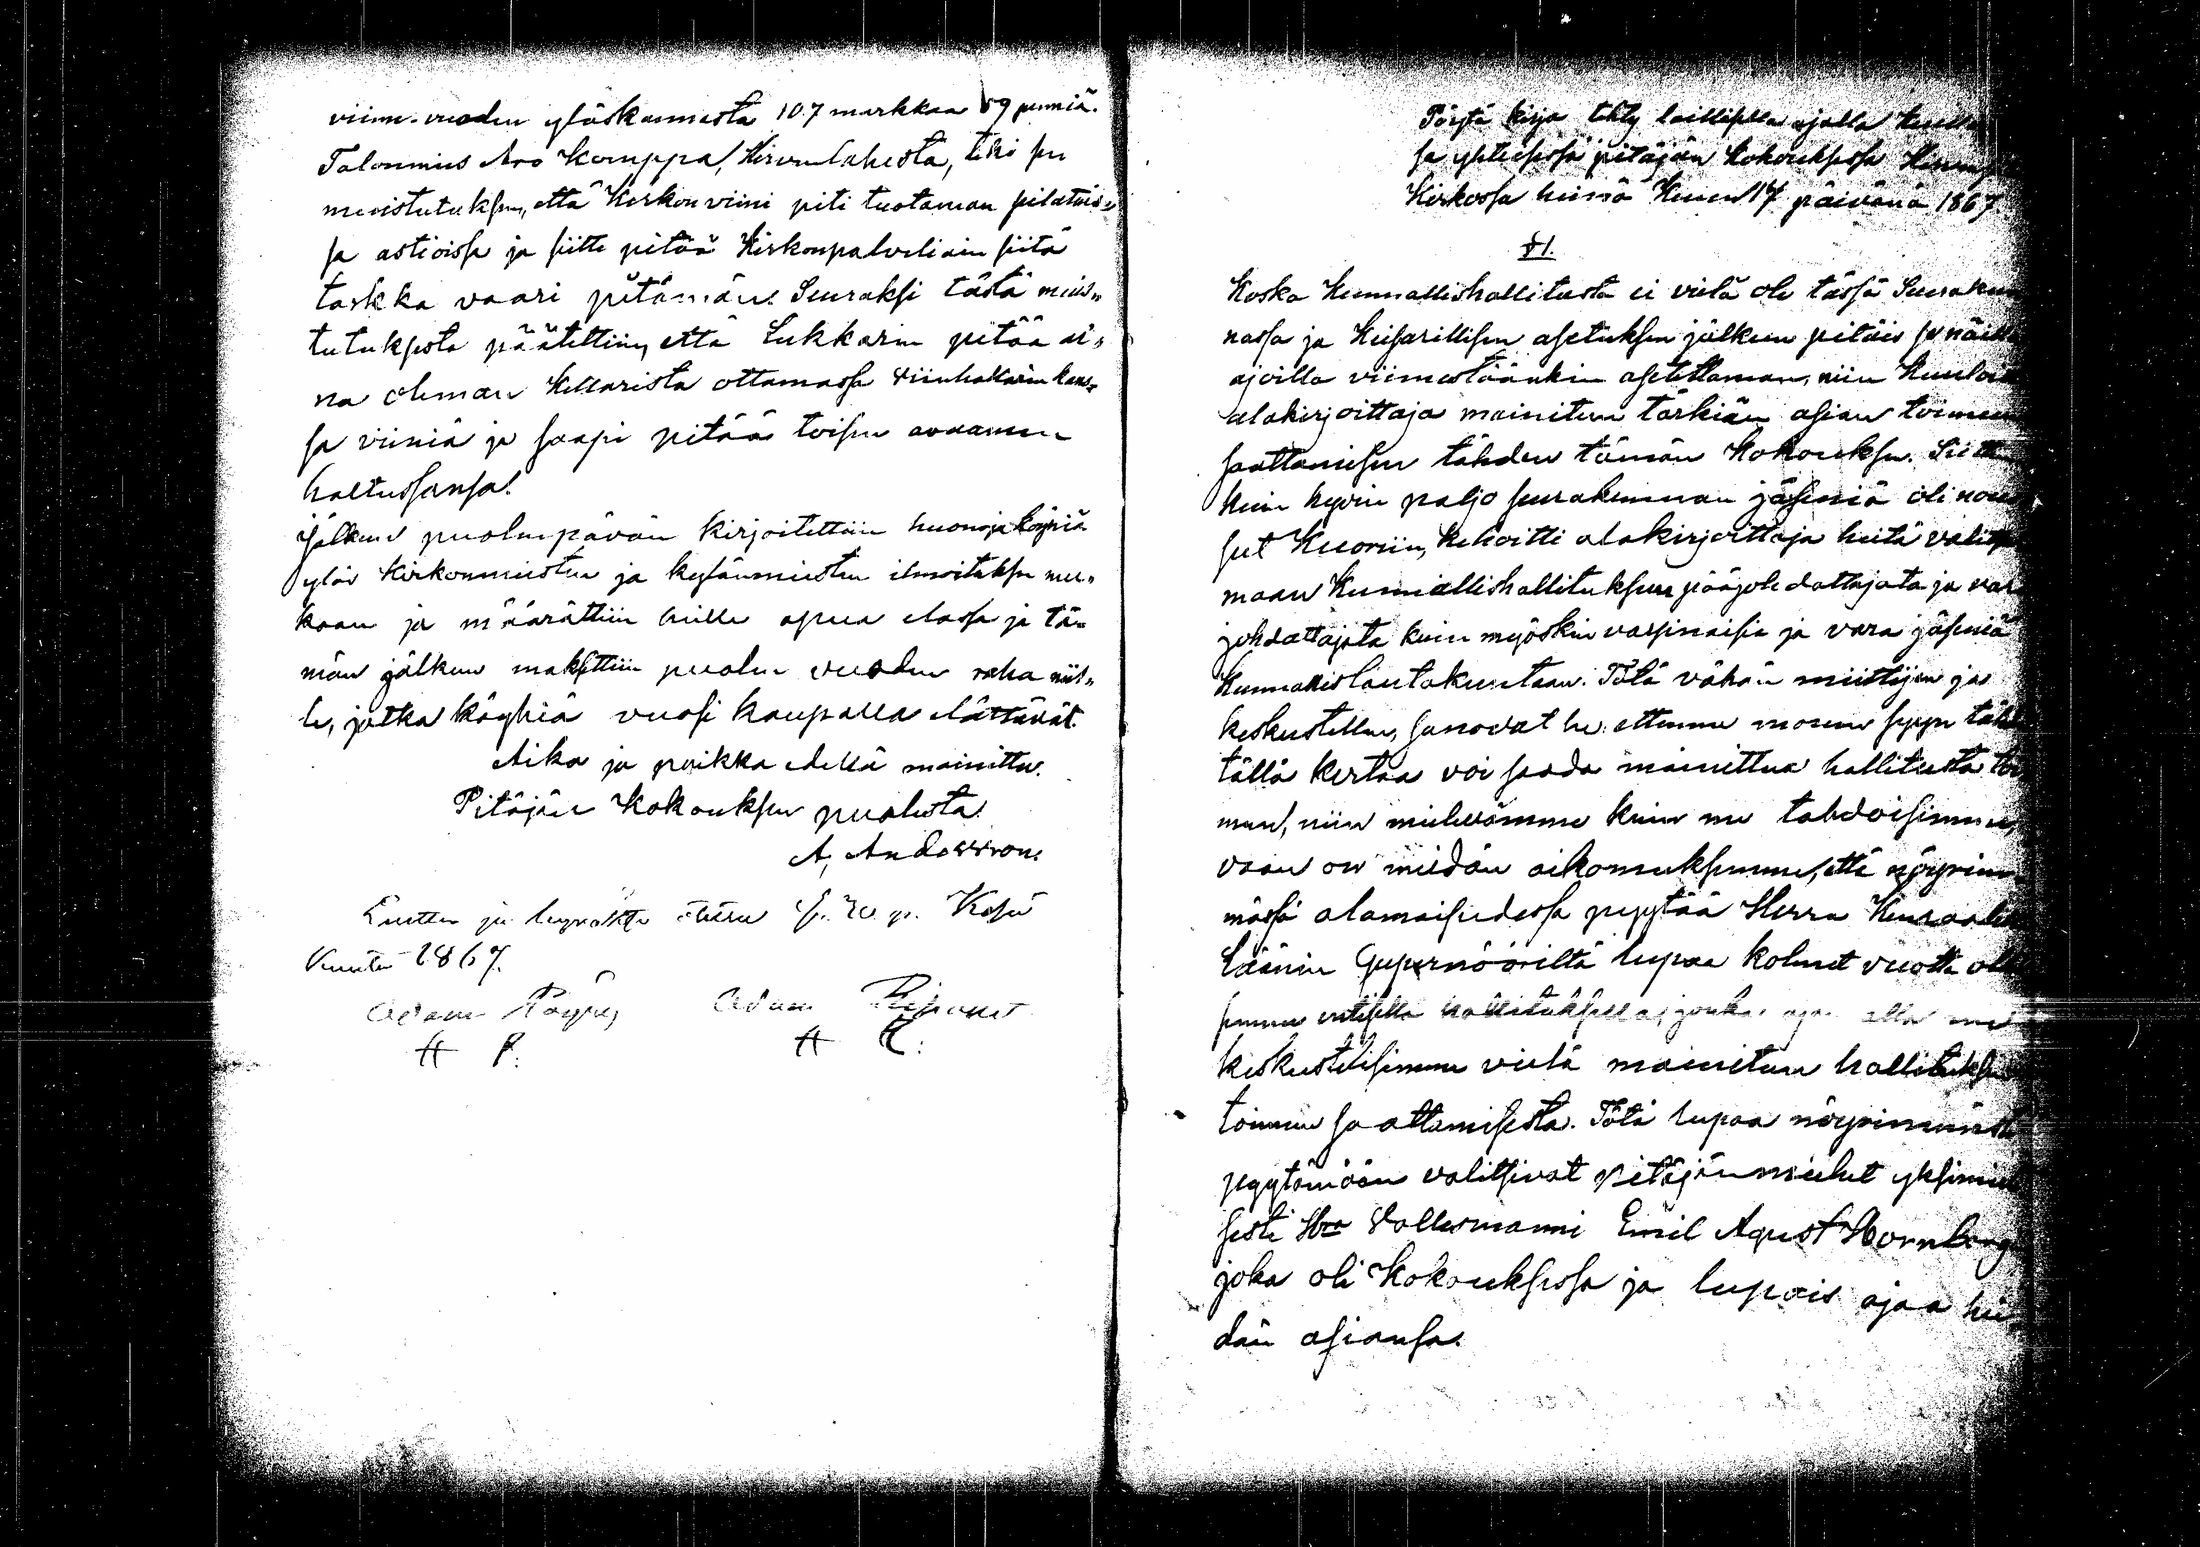 viime-vuoden ylöskannosta 107 markkaa 59 penniä.
Talonmies Aro Kemppa, Hirvenlahesta, teki sen
muistutuksen, että Kirkon viini piti tuotaman silatuis-
sa astioissa ja siitte pitää Kirkonpalvelian siitä
tarkka vaari pitämän. Seuraksi tästä muis-
tutuksesta päätettiin, että Lukkarin pitää ai-
na oleman Kellarista ottamassa viinkallarin kans-
sa viiniä ja saapi pitää toisen avaamen
haltussansa.
Jälkeen puolenpävän kirjoitettiin huonoja köyhiä
ylös Kirkonmiesten ja kylänmiesten ilmoituksen mu-
kaan ja määrättiin heille apua elossa ja tä-
män jälkeen maksettiin puolen vuoden raha niil-
le, jotka köyhiä vuosi kaupalla elättävät.
Aika ja paikka edellä mainittu.
Pitäjän Kokouksen puolesta.
A. Andersson.
Luettu ja hyväksi S. W. p. Kesä
Kuuta 1867.
Adam Adam
H P. H R.
Pöytä kirja tehty laillisella ajalla
ja yhteisessä pitäjän kokouksessa
Kirkossa heinä Kuun 17 päivänä 1867
§1.
Koska Kunnallishallitusta ei vielä ole tässä Seurakun
nassa ja Keisarillisen asetuksen jälkeen pitäis se näillä
ajoilla viimestäänkin asetettaman, niin Kuulois
alakirjoittaja mainitun tärkiän asian toimeen
saattamisen tähden tämän Kokouksen. Siitte
kuin hyvin paljo seurakunnan jäseniä oli nous
sut Kuoriin, kehoitti alakirjoittaja heitä valitse
maan Kunnallishallituksen pääjohdattajata ja vara
johdattajata kuin myöskin varsinaisia ja vara jäseniä
Kunnallislautakuntaan. Tätä vähän mietittyen ja
keskustellen, sanovat he: ettemme monen syyn täh
tällä kertaa voi saada mainittua hallitusta toi
meen, niin mielellämme kuin me tahdoisimme,
vaan on meidän aikomuksemme, että nöyrim
mässä alamaisuudessa pyytää Herra Kenraali
Läänin Gupernööriltä lupaa kolmet vuotta oll
semme entisellä hallituksella, jonka ajan alla me
keskustelisimme vielä mainitun hallituksen
toimeen saattamisesta. Tätä lupaa nöyrimmästi
pyytämään valitsivat pitäjänmiehet yksimie
sesti Hra Vallesmanni Emil Agust Hornborg
joka oli Kokouksessa ja lupais ajaa hei-
dän asiansa.